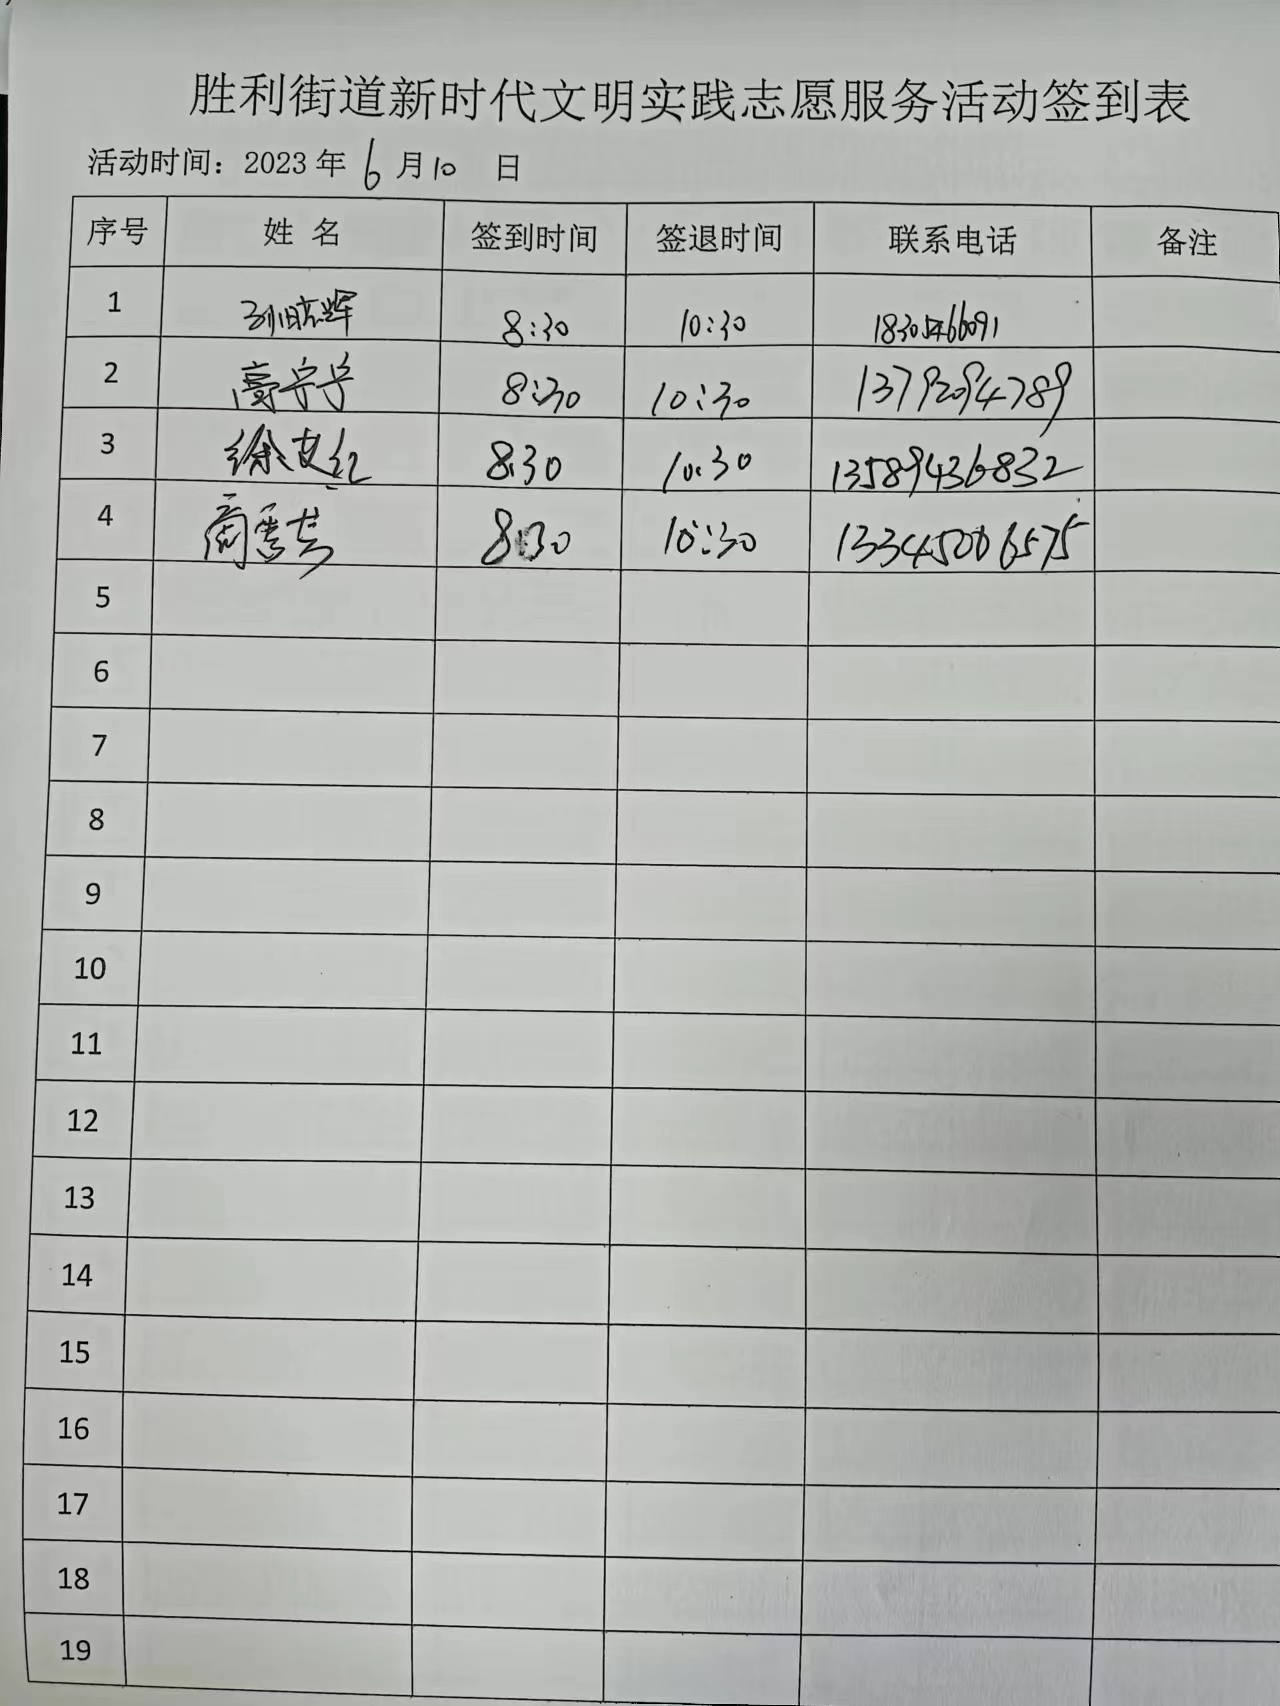 胜利街道新时代文明实践志愿服务活动签到表
活动时间：2023 年 6 月 10 日
序号 姓 名 签到时间 签退时间 联系电话 备注
1 孙晓辉 8:30 10:30 18305466091
2 高宁宁 8:30 10:30 13792094789
3 徐文红 8:30 10:30 13589436832
4 8:30 10:30 13345006575
5
6
7
8
9
10
11
12
13
14
15
16
17
18
19